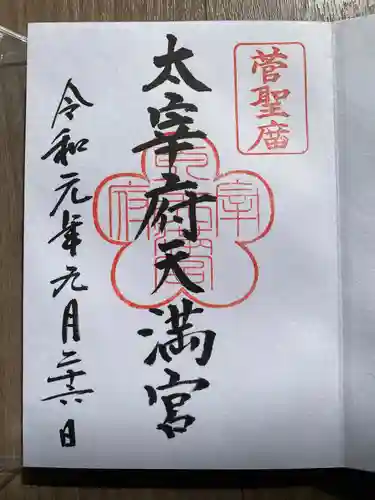 菅聖庿
太宰府天満宮
令和元年九月二十六日